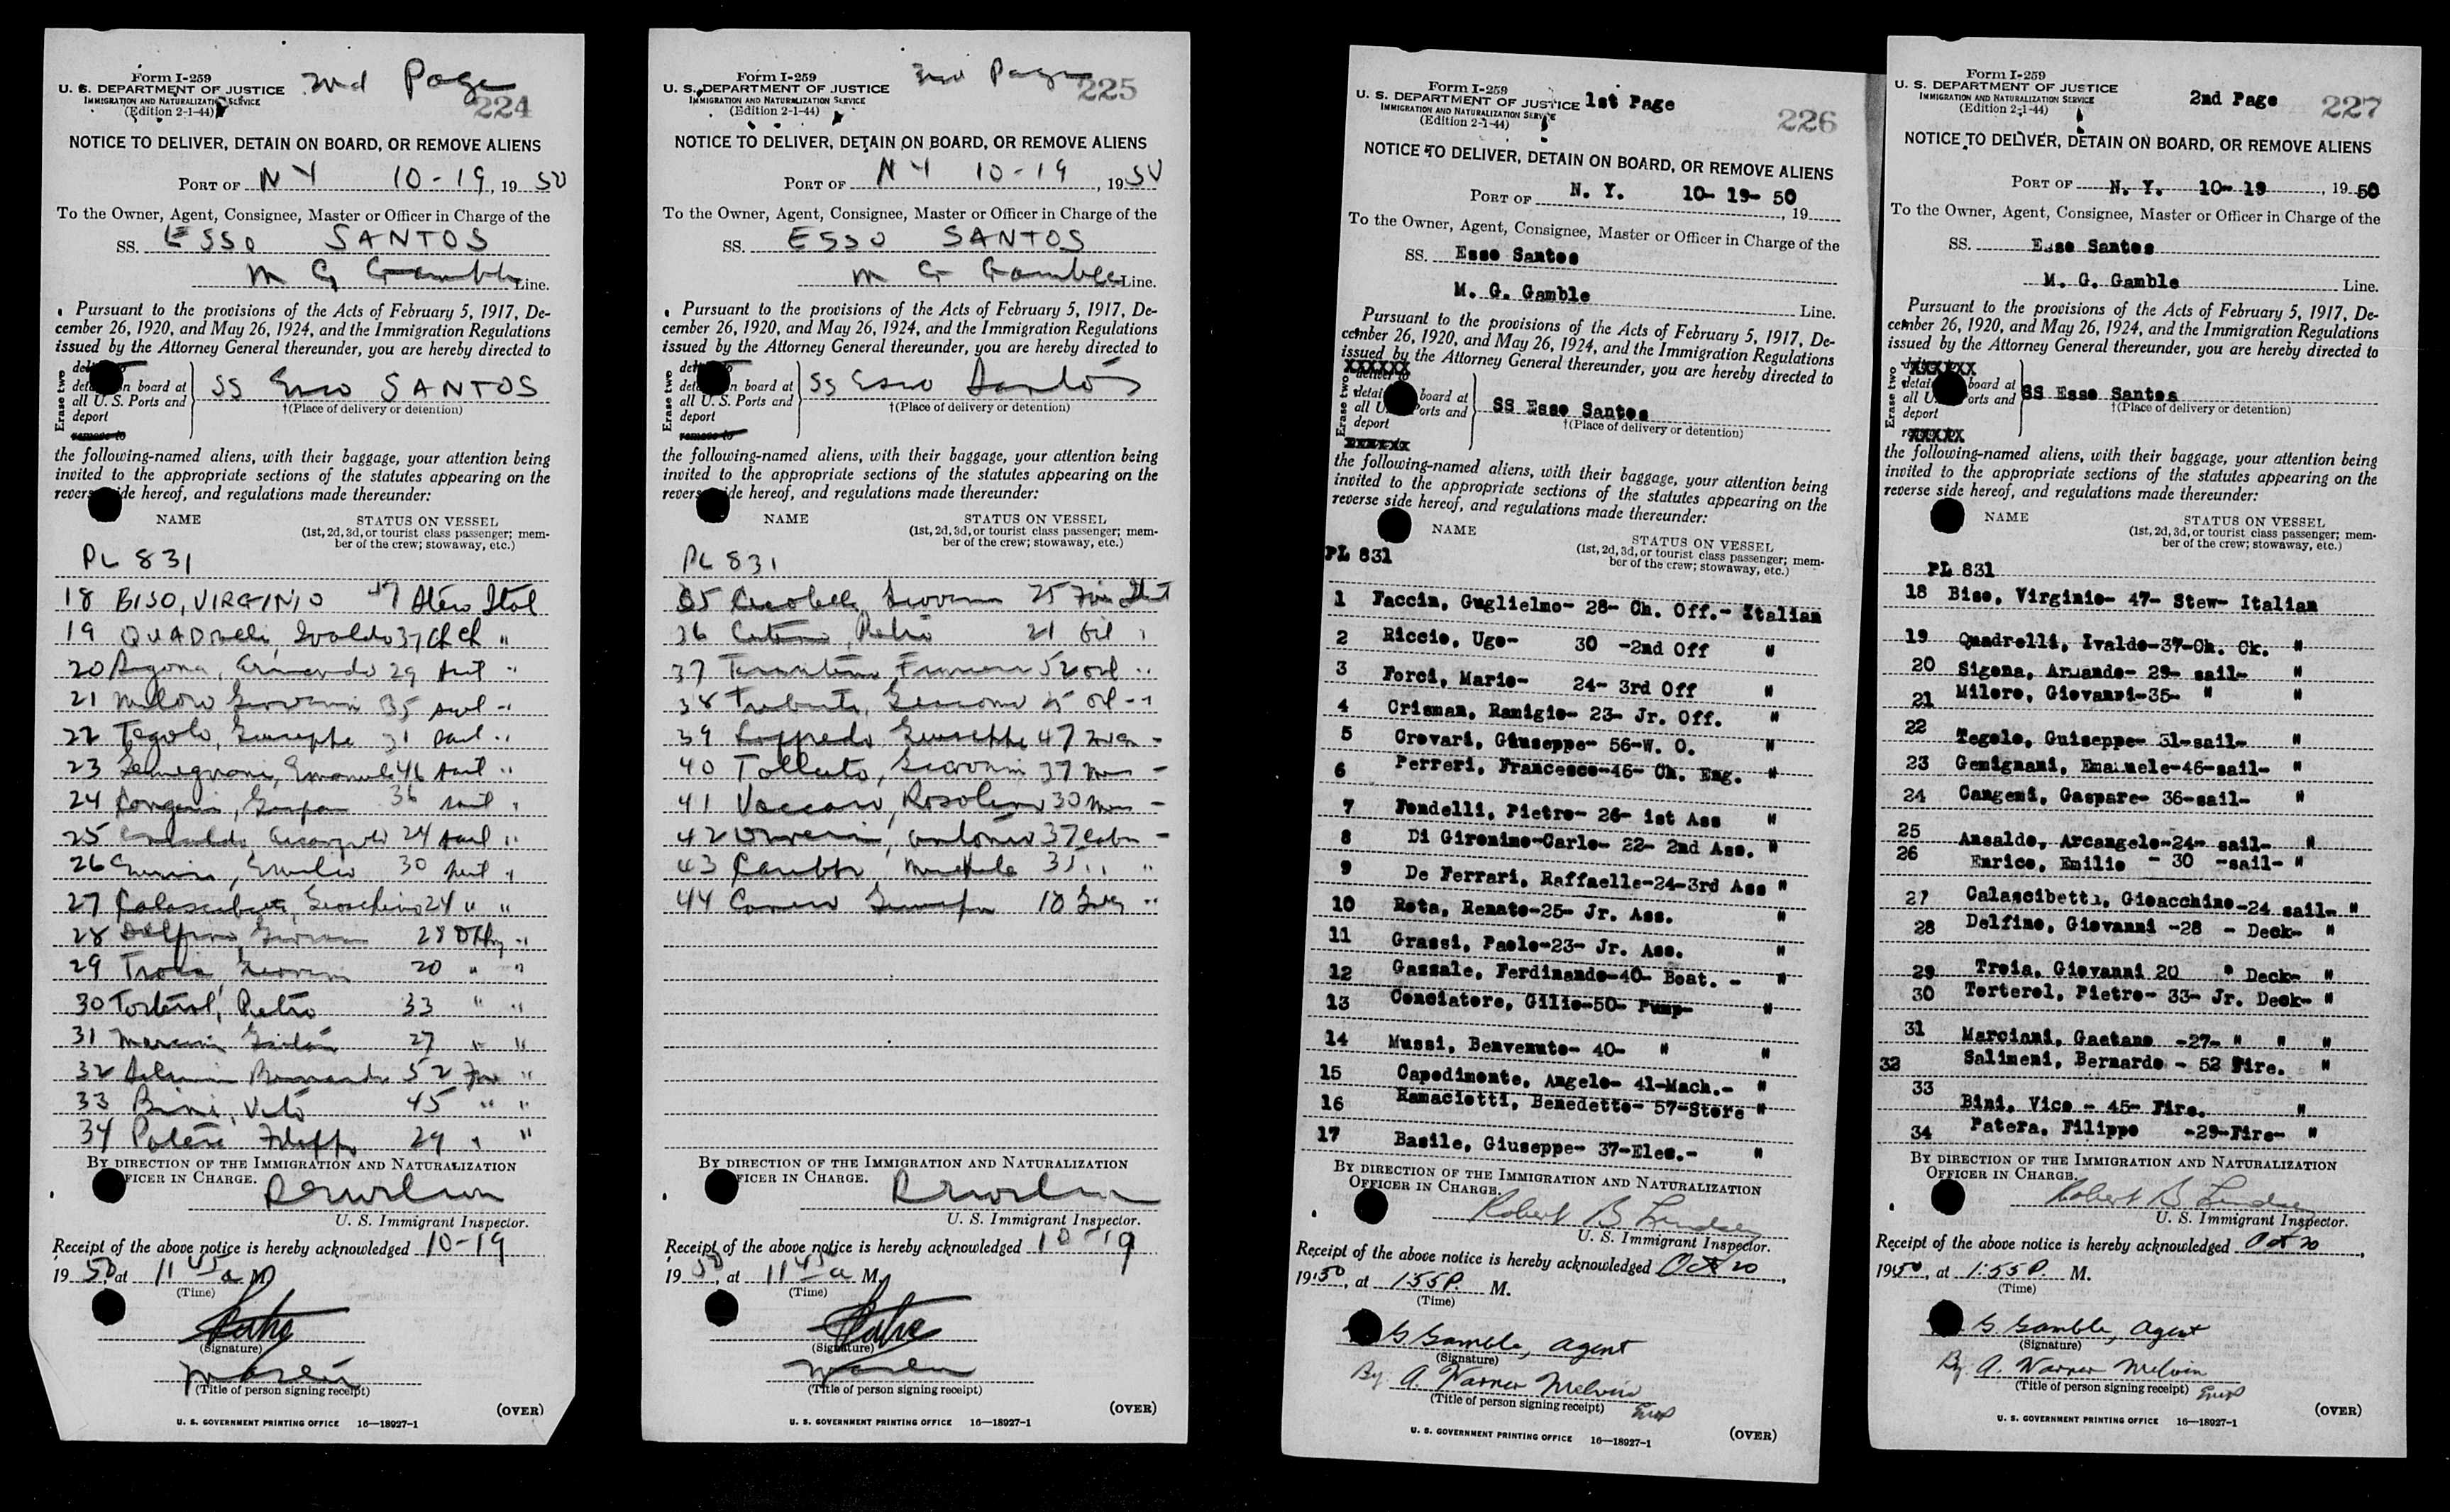 Form I-259
U. S. DEPARTMENT OF JUSTICE
IMMIGRATION AND NATURALIZATION SERVICE
(Edition 2-1-44)
2nd Page
224
NOTICE TO DELIVER, DETAIN ON BOARD, OR REMOVE ALIENS
PORT OF N Y 10-19, 19 50
To the Owner, Agent, Consignee, Master or Officer in Charge of the
SS. ESSO SANTOS
M G Gamble Line.
Pursuant to the provisions of the Acts of February 5, 1917, De-
cember 26, 1920, and May 26, 1924, and the Immigration Regulations
issued by the Attorney General thereunder, you are hereby directed to
Erase two
board at
all U. S. Ports and
deport
remove to
SS Esso SANTOS
†(Place of delivery or detention)
the following-named aliens, with their baggage, your attention being
invited to the appropriate sections of the statutes appearing on the
reverse side hereof, and regulations made thereunder:
NAME STATUS ON VESSEL
(1st, 2d, 3d, or tourist class passenger; mem-
ber of the crew; stowaway, etc.)
PL 831
18 BISO, VIRGINIO 47 Stew Ital
19 QUADrelli, Ivaldo 37 Ch Ck "
20 Sigona, Armando 29 sail "
21 Miloro Giovanni 35 sail "
22 Tegolo, Giuseppe 31 sail "
23 Gemignani, Emanuele 46 sail "
24 Cangemi, Gaspare 36 sail "
25 Ansaldo, Arcangelo 24 sail "
26 Enrico, Emilio 30 sail "
27 Calascibetta, Gioachino 24 " "
28 Delfino, Giovanni 28 "
29 Troia, Giovanni 20 " "
30 Torterol, Pietro 33 " "
31 27 " "
32 Bernardo 52 Fire "
33 Bini, Vito 45 " "
34 Patera Filippo 29 " "
BY DIRECTION OF THE IMMIGRATION AND NATURALIZATION
OFFICER IN CHARGE.
U. S. Immigrant Inspector.
Receipt of the above notice is hereby acknowledged 10-19
19 50, at 11 45 a M.
(Time)
(Signature)
Master
(Title of person signing receipt)
(OVER)
U. S. GOVERNMENT PRINTING OFFICE 16—18927-1
Form I-259
U. S. DEPARTMENT OF JUSTICE
IMMIGRATION AND NATURALIZATION SERVICE
(Edition 2-1-44)
3rd Page
225
NOTICE TO DELIVER, DETAIN ON BOARD, OR REMOVE ALIENS
PORT OF N Y 10-19, 19 50
To the Owner, Agent, Consignee, Master or Officer in Charge of the
SS. ESSO SANTOS
M G Gamble Line.
Pursuant to the provisions of the Acts of February 5, 1917, De-
cember 26, 1920, and May 26, 1924, and the Immigration Regulations
issued by the Attorney General thereunder, you are hereby directed to
Erase two
board at
all U. S. Ports and
deport
remove to
SS Esso Santos
†(Place of delivery or detention)
the following-named aliens, with their baggage, your attention being
invited to the appropriate sections of the statutes appearing on the
reverse side hereof, and regulations made thereunder:
NAME STATUS ON VESSEL
(1st, 2d, 3d, or tourist class passenger; mem-
ber of the crew; stowaway, etc.)
PL 831
35 Giovanni 25 Fire Ital
36 Pietro 21 Oil "
37 52 oil "
38 Giacomo oil "
39 Loffredo, Giuseppe 47
40 Giovanni 37
41 Vaccaro, Rosolino 30
42 Antonio 37
43 Michele 35 " "
44 Giuseppe 18 "
BY DIRECTION OF THE IMMIGRATION AND NATURALIZATION
OFFICER IN CHARGE.
U. S. Immigrant Inspector.
Receipt of the above notice is hereby acknowledged 10-19
19 50, at 11 45 a M.
(Time)
(Signature)
Master
(Title of person signing receipt)
(OVER)
U. S. GOVERNMENT PRINTING OFFICE 16—18927-1
Form I-259
U. S. DEPARTMENT OF JUSTICE
IMMIGRATION AND NATURALIZATION SERVICE
(Edition 2-1-44)
1st Page
226
NOTICE TO DELIVER, DETAIN ON BOARD, OR REMOVE ALIENS
PORT OF N. Y. 10- 19- 50, 19
To the Owner, Agent, Consignee, Master or Officer in Charge of the
SS. Esso Santos
M. G. Gamble Line.
Pursuant to the provisions of the Acts of February 5, 1917, De-
cember 26, 1920, and May 26, 1924, and the Immigration Regulations
issued by the Attorney General thereunder, you are hereby directed to
Erase two
XXXXXX
board at
all U. S. Ports and
deport
XXXXXX
SS Esso Santos
†(Place of delivery or detention)
the following-named aliens, with their baggage, your attention being
invited to the appropriate sections of the statutes appearing on the
reverse side hereof, and regulations made thereunder:
NAME STATUS ON VESSEL
(1st, 2d, 3d, or tourist class passenger; mem-
ber of the crew; stowaway, etc.)
PL 831
1 Faccin, Guglielmo- 28- Ch. Off.- Italian
2 Riccio, Ugo- 30 -2nd Off "
3 Forci, Mario- 24- 3rd Off "
4 Crisman, Ramigio- 23- Jr. Off. "
5 Crovari, Giuseppe- 56-W. O. "
6 Ferreri, Francesco-46- Ch. Eng. "
7 Fondelli, Pietro- 26- 1st Ass "
8 Di Gironimo-Carlo- 22- 2nd Ass. "
9 De Ferrari, Raffaelle-24-3rd Ass "
10 Rota, Renato-25- Jr. Ass. "
11 Grassi, Paolo-23- Jr. Ass. "
12 Gazzale, Ferdinando-40- Boat. - "
13 Conciatore, Gilio-50- Pump- "
14 Mussi, Benvenuto- 40- " "
15 Capodimonte, Angelo- 41-Mach.- "
16 Ramaciotti, Benedetto- 57-Store "
17 Basile, Giuseppe- 37-Elec.- "
BY DIRECTION OF THE IMMIGRATION AND NATURALIZATION
OFFICER IN CHARGE.
Robert B Lindsey
U. S. Immigrant Inspector.
Receipt of the above notice is hereby acknowledged Oct 20,
1950, at 1:55 P. M.
(Time)
G Gamble, Agent
(Signature)
By A. Warner Melvin
(Title of person signing receipt)
(OVER)
U. S. GOVERNMENT PRINTING OFFICE 16—18927-1
Form I-259
U. S. DEPARTMENT OF JUSTICE
IMMIGRATION AND NATURALIZATION SERVICE
(Edition 2-1-44)
2nd Page
227
NOTICE TO DELIVER, DETAIN ON BOARD, OR REMOVE ALIENS
PORT OF N. Y. 10- 19, 19 50
To the Owner, Agent, Consignee, Master or Officer in Charge of the
SS. Esso Santos
M. G. Gamble Line.
Pursuant to the provisions of the Acts of February 5, 1917, De-
cember 26, 1920, and May 26, 1924, and the Immigration Regulations
issued by the Attorney General thereunder, you are hereby directed to
Erase two
XXXXXX
board at
all U. S. Ports and
deport
XXXXX
SS Esso Santos
†(Place of delivery or detention)
the following-named aliens, with their baggage, your attention being
invited to the appropriate sections of the statutes appearing on the
reverse side hereof, and regulations made thereunder:
NAME STATUS ON VESSEL
(1st, 2d, 3d, or tourist class passenger; mem-
ber of the crew; stowaway, etc.)
PL 831
18 Biso, Virginio- 47- Stew- Italian
19 Quadrelli, Ivaldo-37-Ch. Ck. "
20 Sigona, Armando- 29- sail- "
21 Miloro, Giovanni-35- " "
22 Tegolo, Guiseppe- 31-sail- "
23 Gemignani, Emanuele-46-sail- "
24 Cangemi, Gaspare- 36-sail- "
25 Ansaldo, Arcangelo-24- sail- "
26 Enrico, Emilio - 30 -sail- "
27 Calascibetta, Gioacchino-24 sail- "
28 Delfino, Giovanni -28 - Deck- "
29 Troia, Giovanni 20 " Deck- "
30 Torterol, Pietro- 33- Jr. Deck- "
31 Marciani, Gaetano -27- " " "
32 Salimeni, Bernardo - 52 Fire. "
33 Bini, Vico - 45- Fire. "
34 Patera, Filippo -29-Fire- "
BY DIRECTION OF THE IMMIGRATION AND NATURALIZATION
OFFICER IN CHARGE.
Robert B Lindsey
U. S. Immigrant Inspector.
Receipt of the above notice is hereby acknowledged Oct 20,
1950, at 1:55 P. M.
(Time)
G Gamble, Agent
(Signature)
By A. Warner Melvin
(Title of person signing receipt)
(OVER)
U. S. GOVERNMENT PRINTING OFFICE 16—18927-1